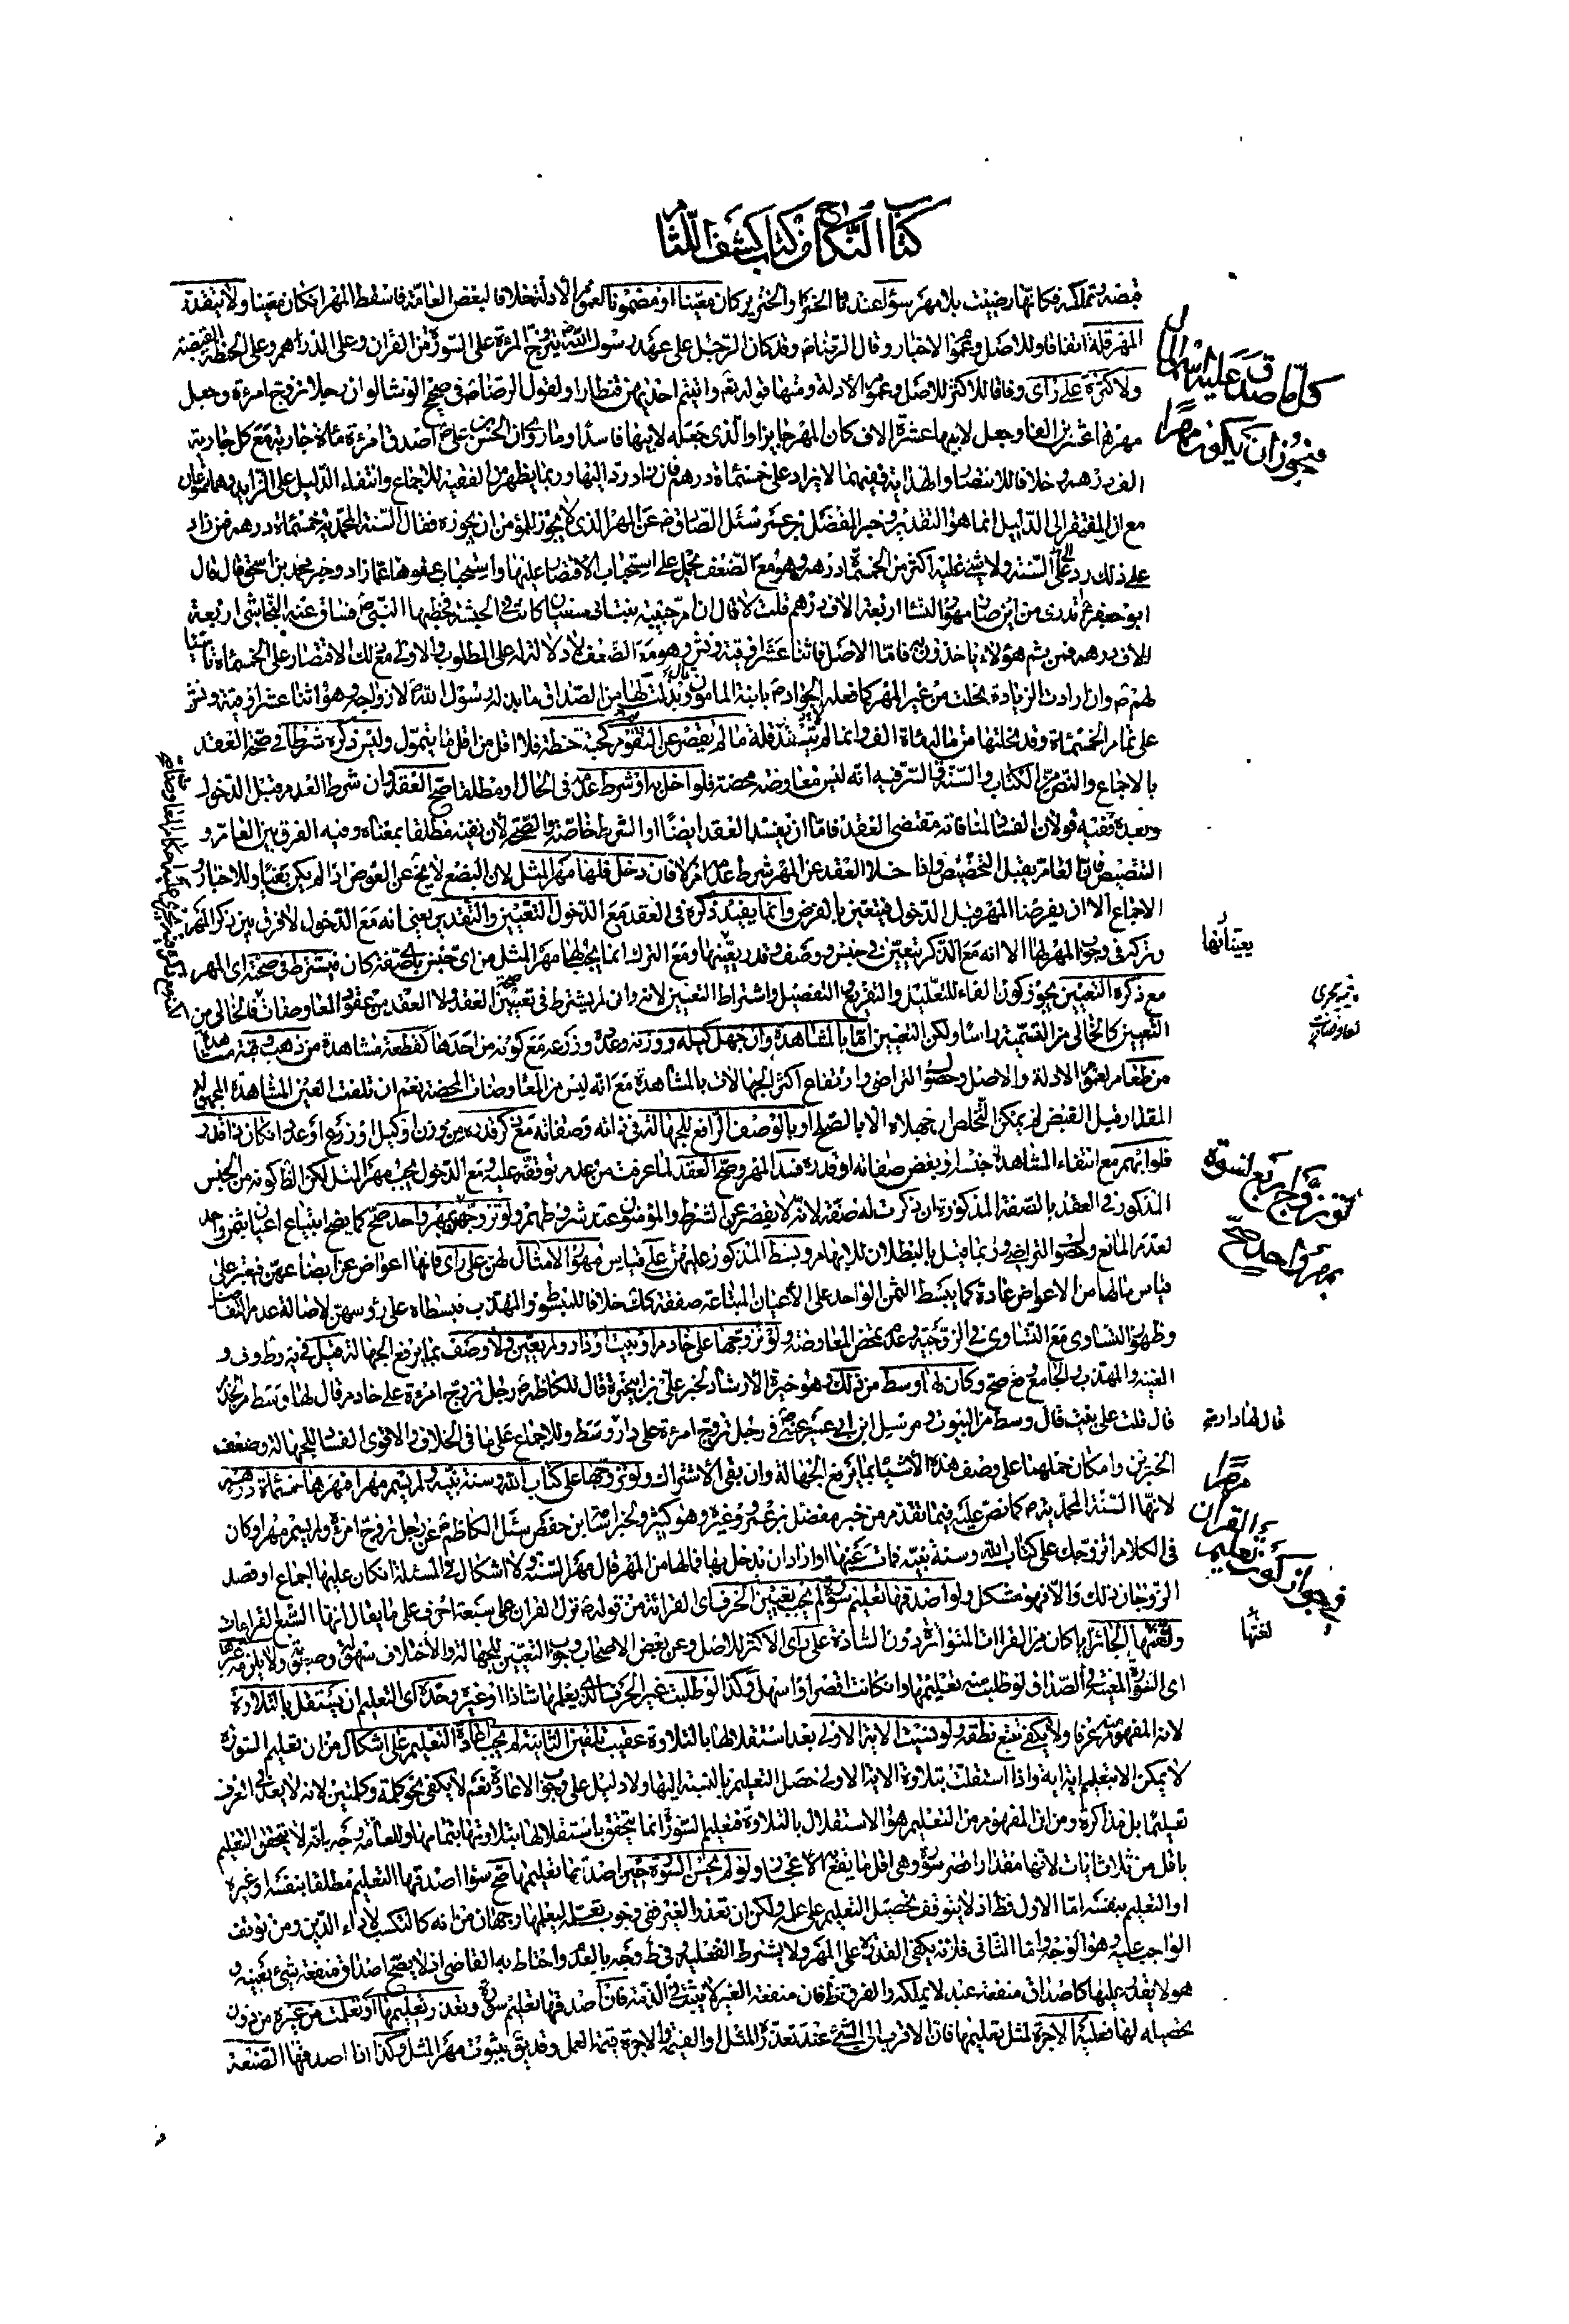 كتاب النكاح من كتاب كشف اللثام
قبضه وتملكه فكانها رضيت بلا مهر سواء عندنا الخمر او الخنزير كان معينا او مضمونا لعموم الادلة خلافا لبعض العامة فاسقط المهر ان كان معينا ولا يتقدر
المهر قلة اتفاقا وللاصل وعموم الاخبار وقال الرضا ع وقد كان الرجل على عهد رسول الله ص يتزوج المرئة على السورة من القرآن وعلى الدراهم وعلى الحنطة القبضة
ولا كثرة على راى وفاقا للاكثر للاصل وعموم الادلة ومنها قوله تعم واتيتم احديهن قنطارا ولقول الرضا ع في صحيح الوشا لو ان رجلا تزوج امرءة وجعل
مهرها عشرين الفا وجعل لابيها عشرة الاف كان المهر جايزا والذى جعله لابيها فاسدا وما روى ان الحسن بن على ع اصدق امرءة مائة جارية مع كل جارية
الف درهم خلافا للانتصار والهداية ففيهما لا يزاد على خمسمائة درهم فان زاد رد اليها وربما يظهر من الفقيه للاجماع وانتفاء الدليل على الزايد وهما ممنوعان
مع انه المفتقر الى الدليل انما هو التقدير وخبر المفضل بن عمر سئل الصادق ع عن المهر الذى لا يجوز للمؤمن ان يجوزه فقال السنة المحمدية خمسمائة درهم فمن زاد
على ذلك رد الى السنة ولا شىء عليه اكثر من الخمسمائة درهم وهو مع الضعف يحمل على استحباب الاقتصار عليها واستحباب عفوها عما زاد وخبر محمد بن اسحق قال قال
ابو جعفر ع تدرى من اين صار مهور النساء اربعة الاف درهم قلت لا قال ان ام حبيبة بنت ابى سفيان كانت في الحبشة فخطبها النبى ص فساق عنه النجاشى اربعة
الاف درهم فمن ثم هؤلاء ياخذون به فاما الاصل فاثنا عشر اوقية ونش وهو مع الضعف لا دلالة له على المطلوب والاولى مع ذلك الاقتصار على الخمسمائة تاسيا
بهم ع وان ارادت الزيادة نحلت من غير المهر كما فعله الجواد ع بابنة المامون قال وبذلت لها من الصداق ما بذله رسول الله ص لازواجه وهو اثنا عشر اوقية ونش
على تمام الخمسمائة وقد نحلتها من مالى مائة الف وانما لم يتقدر قلة ما لم يقصر عن التقوم كحبة حنطة فلا اقل من اقل ما يتمول وليس ذكره شرطا في صحة العقد
بالاجماع والنص من الكتاب والسنة والسر فيه انه ليس معاوضة محضة فلو اخل به او شرط عدمه في الحال او مطلقا صح العقد وان شرط العدم قبل الدخول
وبعده ففيه قولان الفساد لمنافاته مقتضى العقد فاما ان يفسد العقد ايضا او الشرط خاصة والصحة لان نفيه مطلقا بمعناه وفيه الفرق بين العام و
التنصيص فان العام يقبل التخصيص واذا خلا العقد عن المهر شرط عدمه ام لا فان دخل فلها مهر المثل لان البضع لا يخ عن العوض اذا لم يكن بغيا وللاخبار و
الاجماع الا ان يفرضا المهر قبل الدخول فيتعين بالفرض وانما يفيد ذكره في العقد مع الدخول التعيين والتقدير يعنى انه مع الدخول لا فرق بين ذكر المهر
وتركه في وجوب المهر لها الا انه مع الذكر تعين في جنس ووصف وقدر يعينها ومع الترك انما يجب لها مهر المثل من اى جنس باى صفة كان فيشترط في صحته اى المهر
مع ذكره التعيين يجوز كون الفاء للتعليل والتفريع والتفصيل واشتراط التعيين لانه وان لم يشترط في صحة العقد ولا العقد من عقود المعاوضات فالخالى من
التعيين كالخالى من التسمية راسا ولكن التعيين اما بالمشاهدة وان جهل كيله ووزنه وعده وذرعه مع كونه من احدها كقطعة مشاهدة من ذهب وقبة مشاهدة
من طعام لعموم الادلة والاصل وحصول التراضى وارتفاع اكثر الجهالات بالمشاهدة مع انه ليس من المعاوضات المحضة نعم ان تلفت العين المشاهدة المجهولة
المقدار قبل القبض لم يمكن التخلص ان جهلاه الا بالصلح او بالوصف الرافع للجهالة في ذاته وصفاته مع ذكر قدره من وزن او كيل او ذرع او عد ان كان ذا قدر
فلو ابهم مع انتفاء المشاهدة جنسا او بعض صفاته او قدره فسد المهر وصح العقد لما عرفت من عدم توقفه عليه مع الدخول يجب مهر المثل لكن الظ كونه من الجنس
المذكور في العقد بالصفة المذكورة ان ذكرت له صفة لانه لا يقصر عن الشرط والمؤمنون عند شروطهم ولو تزوجهن بمهر واحد صح كما يصح ابتياع اعيان بثمن واحد
لعدم المانع وحصول التراضى وربما قيل بالبطلان للابهام وبسط المذكور عليهن على قياس مهور الامثال لهن على راى فانها اعواض عن ابضاعهن فيعتبر على
قياس مالها من الاعواض عادة كما يبسط الثمن الواحد على الاعيان المبتاعة صفقة كك خلافا للمبسوط والمهذب فبسطاه على رؤسهن لاصالة عدم التفاضل
وظهور التساوى مع التساوى في الزوجية وعدم محض المعاوضة ولو تزوجها على خادم او بيت او دار ولم يعين ولا وصف بما يرفع الجهالة قيل في يه وط وف و
الغنية والمهذب والجامع صح وكان لها وسط من ذلك وهو خيرة الارشاد لخبر على بن ابى حمزة قال للكاظم ع رجل تزوج امرءة على خادم قال لها وسط من الخدم
قال قلت على بيت قال وسط من البيوت ومرسل ابن ابى عمير عنه ع في رجل تزوج امرءة على دار وسط وللاجماع على ما في الخلاف والاقوى الفساد للجهالة وضعف
الخبرين وامكان حملهما على وصف هذه الاشيا بما يرفع الجهالة وان بقى الاشتراك ولو تزوجها على كتاب الله وسنة نبيه ولم يسم مهرا فمهرها خمسمائة درهم
لانها السنة المحمدية ص كما نص عليه فيما تقدم من خبر مفضل بن عمر وغيره وهو كثير ولخبر اسامة بن حفص سئل الكاظم ع عن رجل تزوج امرءة ولم يسم مهرا وكان
في الكلام اتزوجك على كتاب الله وسنة نبيه فمات عنها او اراد ان يدخل بها فما لها من المهر قال مهر السنة ولا اشكال في المسئلة ان كان عليها اجماع او قصد
الزوجان ذلك والا فهو مشكل ولو اصدقها تعليم سورة لم يجب تعيين الحرف اى القرائة من قوله ص نزل القران على سبعة احرف على ما يقال انها السبع القراءات
ولقنها الجائز ايا كان من القراات المتواترة دون الشاذة على راى الاكثر للاصل وعن بعض الاصحاب وجوب التعيين للجهالة والاختلاف سهولة وصعوبة ولا يلزمه غيرها
اى السورة المعينة في الصداق لو طلبت منه تعليمها وان كانت اقصر او اسهل وكذا لو طلبت غير الحرف الذى يعلمها شاذا او غيره وحده اى التعليم ان يستقل بالتلاوة
لانه المفهوم منه عرفا ولا يكفى تتبع نطقه ولو نسيت الاية الاولى بعد استقلالها بالتلاوة عقيب تلقين الثانية لم يجب اعادة التعليم على اشكال من ان تعليم السورة
لا يمكن الا بتعليم اية اية واذا استقلت بتلاوة الاية الاولى حصل التعليم بالنسبة اليها ولا دليل على وجوب الاعادة نعم لا يكفى نحو كلمة وكلمتين لانه لا يعد في العرف
تعليما بل مذاكرة ومن ان المفهوم من التعليم هو الاستقلال بالتلاوة فتعليم السورة انما يتحقق باستقلالها بتلاوتها بتمامها وللعامة وجه بانه لا يتحقق التعليم
باقل من ثلاث ايات لانها مقدار اقصر سورة وهى اقل ما يقع به الاعجاز ولو لم يحسن السورة حين اصدقها تعليمها صح سواء اصدقها التعليم مطلقا بنفسه او غيره
او التعليم بنفسه اما الاول فظ اذ لا يتوقف تحصيل التعليم على علمه ولكن ان تعذر الغير ففى وجوب تعلمه ليعلمها وجهان من انه كالتكسب لاداء الدين ومن توقف
الواجب عليه وهو الوجه واما الثانى فلانه يكفى القدرة على المهر ولا يشترط الفعلية وفى ط وجه بالعدم واحتاط به القاضى اذ لا يصح اصداق منفعة شىء بعينه و
هو لا يقدر عليها كاصداق منفعة عبد لا يملكه والفرق ظ فان منفعة الغير لا يثبت في الذمة فان اصدقها تعليم سورة وتعذر تعليمها او تعلمت من غيره من دون
تحصيله لها فعليه الاجرة لمثل تعليمها فان الاقرب الى الشىء عند تعذره المثل او القيمة والاجرة قيمة العمل وقد يق بثبوت مهر المثل وكذا اذا اصدقها الصنعة
كل ما صدق عليه اسم المال
فيجوز ان يكون مهرا
يعنيانها
لو تزوج اربع نسوة
بمهر واحد صح
قال لها دار
مهرا
القران
وجواز كون تعليم
لغتها